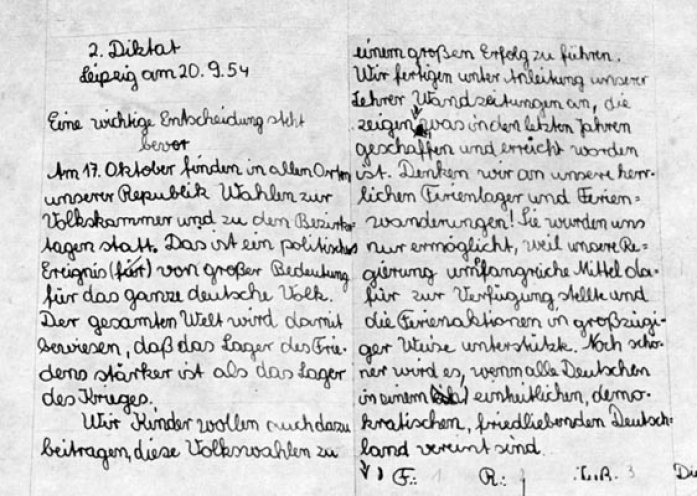 2. Diktat
Leipzig am 20. 9. 54
Eine wichtige Entscheidung steht
bevor
Am 17. Oktober finden in allen Orten
unserer Republik Wahlen zur
Volkskammer und zu den Bezirks-
tagen statt. Das ist ein politisches
Ereignis (für) von großer Bedeutung
für das ganze deutsche Volk.
Der gesamten Welt wird damit
bewiesen, daß das Lager des Frie-
dens stärker ist als das Lager
des Krieges.
Wir Kinder wollen auch dazu
beitragen, diese Volkswahlen zu
einem großen Erfolg zu führen.
Wir fertigen unter Anleitung unserer
Lehrer Wandzeitungen an, die
zeigen, was in den letzten Jahren
geschaffen und erreicht worden
ist. Denken wir an unsere herr-
lichen Ferienlager und Ferien=
wanderungen! Sie wurden uns
nur ermöglicht, weil unsere Re=
gierung umfangreiche Mittel da-
für zur Verfügung stellte und
die Ferienaktionen in großzügi-
ger Weise unterstützte. Noch schö-
ner wird es, wenn alle Deutschen
in einem einheitlichen, demo-
kratischen, friedliebenden Deutsch-
land vereint sind.
F.: 1 R.: 1 I.A. 3 Di